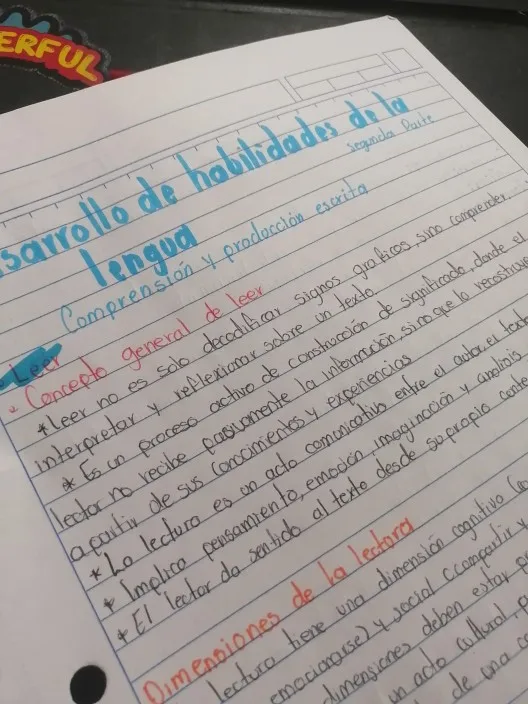 ERFUL
sarrollo de habilidades de la
lengua
segunda Parte
Comprensión y producción escrita
Leer
- Concepto general de leer
*Leer no es solo decodificar signos graficos, sino comprender,
interpretar y reflexionar sobre un texto.
* Es un proceso activo de construcción de significado, donde el
lector no recibe pasivamente la información, sino que la
a partir de sus conocimientos y experiencias
* La lectura es un acto comunicativo entre el autor, el
* Implica pensamiento, emoción, imaginación y analisis
* El lector da sentido al texto desde su propio
Dimensiones de la lectura
lectura tiene una dimensión cognitivo
emocionarse) y social (compartir
dimensiones deben estar
un acto cultural,
de una